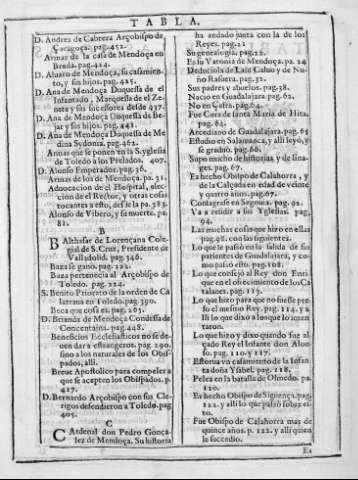 TABLA.
D. Andres de Cabrera Arçobispo de
Çaragoça. pag. 452.
Armas de la casa de Mendoça en
Breda. pag. 424.
D. Aluaro de Mendoça, su casamien-
to, y sus hijos. pag. 425.
D. Ana de Mendoça Duquesa de el
Infantado, Marquesa de el Ze-
nete y sus sucessores desde 437.
D. Ana de Mendoça Duquesa de Be-
jar y sus hijos. pag. 441.
D. Ana de Mendoça Duquesa de Me
dina Sydonia. pag. 462.
Armas que se ponen en la S. yglesia
de Toledo a los Prelados. 407.
D. Alonso Emperador. pag. 36.
Armas de los de Mendoça. pa. 31.
Aduocacion de el Hospital, elec-
cion de el Rector, y otras cosas
tocantes a esto, desde la pa. 383.
Alonso de Vibero, y se muerte. pa.
82.
B
Balthasar de Lorençana Cole-
gial de S. Cruz, Presidente de
Valladolid. pag. 346.
Baza se ganò. pag. 222.
Baza pertenecia al Arçobispo de
Toledo. pag. 224.
S. Benito Priorato de la orden de Ca
latraua en Toledo. pag. 390.
Beca que cosa es. pag. 265.
D. Brianda de Mendoça Condessa de
Concentaina. pag. 448.
Beneficios Ecclesiasticos no se de-
uen dar a estrangeros. pag. 290.
sino a los naturales de los Obis-
pados, alli.
Breue Apostolico para compeler a
que se acepten los Obispados. p.
417.
D. Bernardo Arçobispo con sus Cle-
rigos defendieron a Toledo. pag
405.
C
Cardenal don Pedro Gonça-
lez de Mendoça. Su historia
ha andado junta con la de los
Reyes. pag. 21
Su genealogia. pag. 22.
Es su Varonia de Mendoça. pa. 24
Deduciola de Lain Caluo y de Nu-
ño Rasuera. pag. 32.
Sus padres y abuelos. pag. 38.
Nacio en Guadalajara. pag. 62.
No en Cafra. pag. 64.
Fue Cura de santa Maria de Hita.
pag. 64.
Arcediano de Guadalajara. pag. 65
Estudio en Salamanca, y alli leyo, y
se graduò. pag. 66.
Supo mucho de historias, y de lina-
ges. pag. 67.
Es hecho Obispo de Calahorra, y
de la Calçada en edad de veinte
y quatro años. pag. 67.
Consagrase en Segouia. pag. 92.
Va a residir a sus Yglesias. pag.
94.
Las muchas cosas que hizo en ellas
pag. 98. con las siguientes.
Lo que le passò en la salida de sus
parientes de Guadalajara, y co-
mo passò esto. pag. 108.
Lo que consejò al Rey don Enri
que en el ofrecimiento de los Ca
talanes. pag. 113.
Lo que hizo para que no fuesse pre-
so el mesmo Rey. pag. 114. ya
lli lo que dixo a los que lo inten
taron.
Lo que hizo y dixo quando fue al-
çado Rey el Infante don Alon-
so. pag. 110. y 117.
Estorua vn casamiento de la Infan
ta doña Ysabel. pag. 118.
Pelea en la batalla de Olmedo. pa.
120.
Es hecho Obispo de Siguença. pag.
122. y alli lo que passò sobre es-
to.
Fue Obispo de Calahorra mas de
quinze años. p. 122. y alli quien
le sucedio.
Es